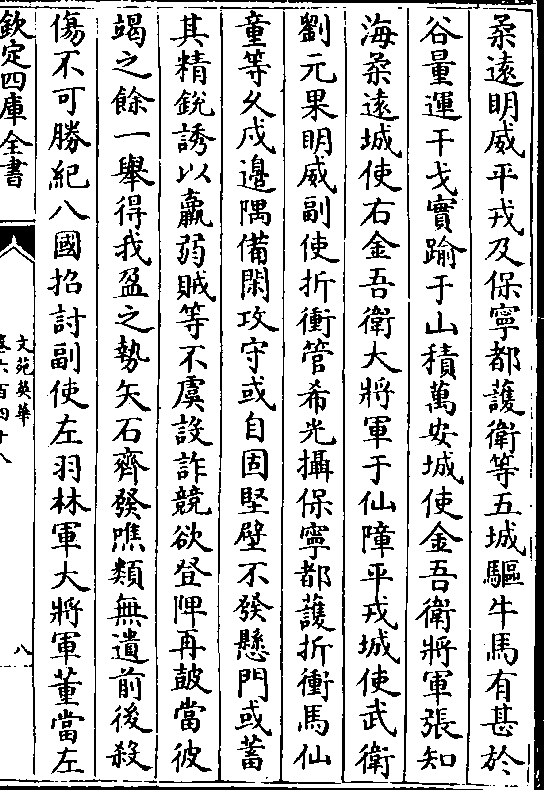 柔逺明威平戎及保寧都䕶衛等五城驅牛馬有甚於
谷量運干戈實踰于山積萬安城使金吾衛將軍張知
海柔逺城使右金吾衛大將軍于仙障平戎城使武衛
劉元果明威副使折衝管希光攝保寧都䕶折衝馬仙
童等乆戍邉隅備閑攻守或自固堅壁不發懸門或蓄
其精銳誘以羸弱賊等不虞設詐競欲登陴再皷當彼
竭之餘一舉得我盈之勢矢石齊發噍類無遺前後殺
傷不可勝紀八國招討副使左羽林軍大將軍董當左
欽定四庫全書
文苑英華
卷六百四十八
八